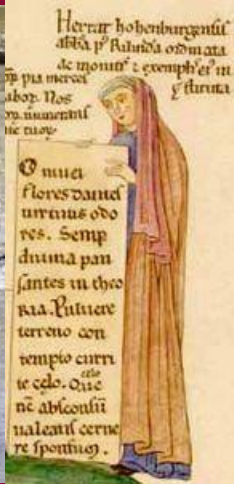 Herrat hohenburgensis
abba p' Rilinda ordinata
ac monitis & exemplis ei' in
stituta
pia merces
labor. Nos
numeratis
tuor
O nivei
flores dantes
virtutis odo
res. Semp
divina pau
santes in theo
ria. Pulvere
terreno con
tempto curri
te celo. Que
nc absconsu
valeatis cerne
re sponsum.